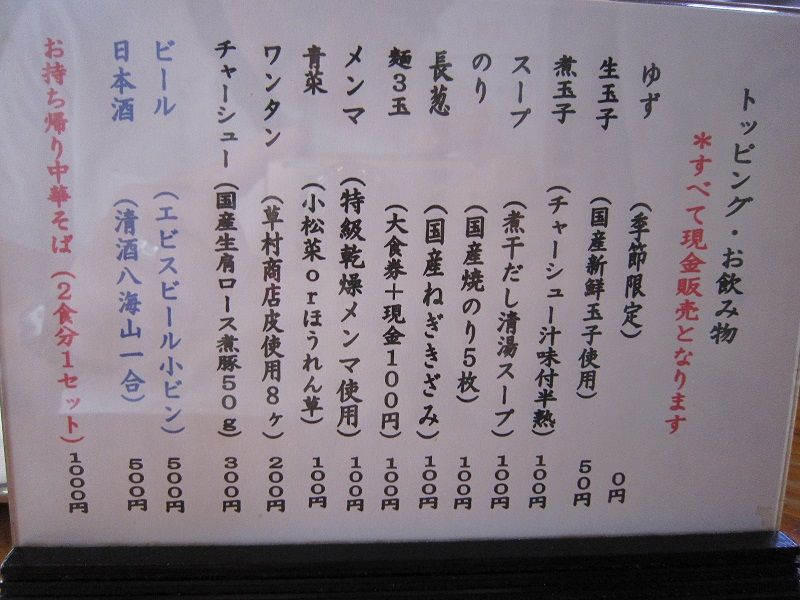 トッピング・お飲み物
＊すべて現金販売となります
ゆず（季節限定）０円
生玉子（国産新鮮玉子使用）５０円
煮玉子（チャーシュー汁味付半熟）１００円
スープ（煮干だし清湯スープ）１００円
のり（国産焼のり５枚）１００円
長葱（国産ねぎきざみ）１００円
麺３玉（大食券＋現金１００円）１００円
メンマ（特級乾燥メンマ使用）１００円
青菜（小松菜ｏｒほうれん草）１００円
ワンタン（草村商店皮使用８ヶ）２００円
チャーシュー（国産生肩ロース煮豚５０ｇ）３００円
ビール（エビスビール小ビン）５００円
日本酒（清酒八海山一合）５００円
お持ち帰り中華そば（２食分１セット）１０００円